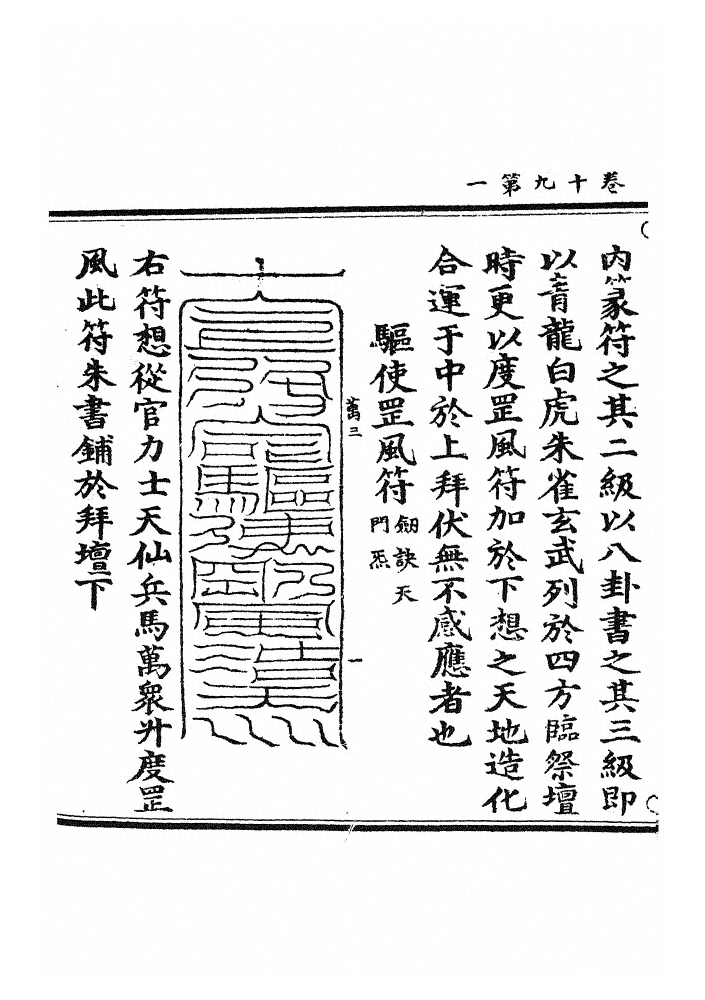 卷十九第一
內篆符之其二級以八卦書之其三級即
以青龍白虎朱雀玄武列於四方臨祭壇
時更以度罡風符加於下想之天地造化
合運于中於上拜伏無不感應者也
驅使罡風符 劔訣天
門炁
萬三
一
右符想從官力士天仙兵馬萬衆廾度罡
風此符朱書鋪於拜壇下